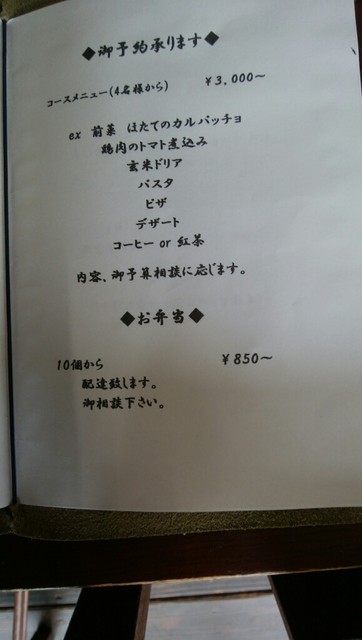 ◆御予約承ります◆
コースメニュー(4名様から) ¥3,000～
ex 前菜 ほたてのカルパッチョ
鶏肉のトマト煮込み
玄米ドリア
パスタ
ピザ
デザート
コーヒー or 紅茶
内容、御予算相談に応じます。
◆お弁当◆
10個から ¥850～
配達致します。
御相談下さい。